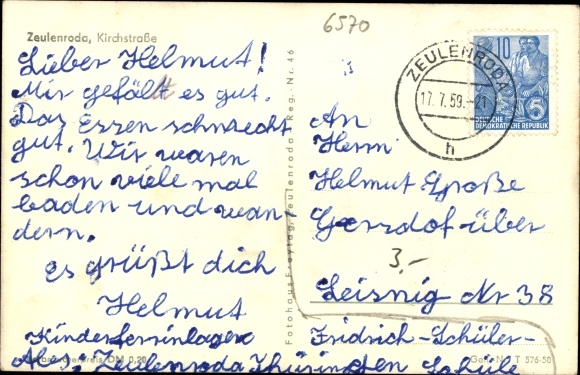 6570
Zeulenroda, Kirchstraße
Lieber Helmut!
Mir gefällt es gut.
Das Essen schmeckt
gut. Wir waren
schon viele mal
baden und wan
dern.
es grüßt dich
Helmut
Kinderferienlager
Zeulenroda Thüringen
Verbraucherpreis DM 0,20
Fotohaus Freytag, Zeulenroda Reg.-Nr. 46
ZEULENRODA
17.7.59.-21
h
10
5
DEUTSCHE
DEMOKRATISCHE REPUBLIK
An
Herrn
Helmut Große
Gersdof über
3,-
Leisnig Nr 38
Fridrich-Schüler-
Schule
T 576-50